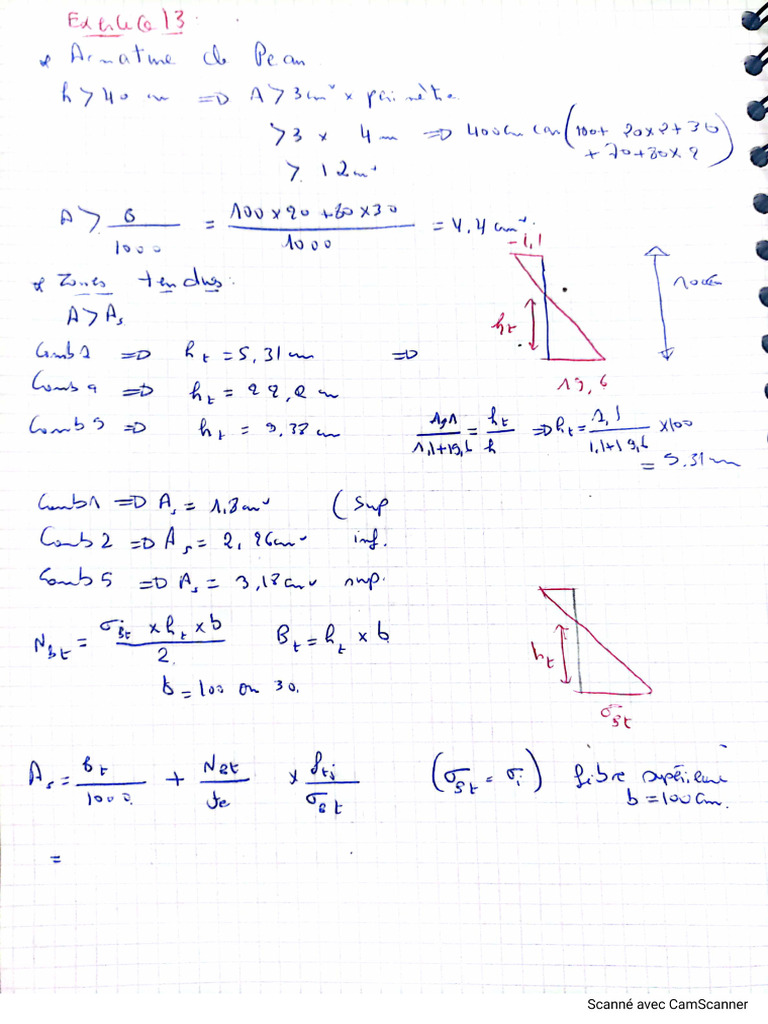 Exercice 13
* Armature de Peau
h > 40 cm => A > 3 cm² × périmètre
> 3 × 4 m => 400 cm car (100 + 20×2 + 30 + 70 + 80×2)
> 12 cm²
A > B/1000 = (100×20 + 80×30)/1000 = 4,4 cm².
-1,1
* Zones tendues:
100 cm
A > As
ht
Comb 1 => ht = 5,31 cm =>
19,6
=> ht = 22,2 m
=> ht = 9,38 cm
1,1/(1,1+19,6) = ht/h => ht = 1,1/(1,1+19,6) × 100
= 5.31 cm
Comb 1 => As = 1,8 cm² (sup
Comb 2 => As = 2,26 cm² inf.
Comb 5 => As = 3,18 cm² sup.
NBt = (σBt × ht × b)/2. Bt = ht × b
ht
b = 100 ou 30.
σBt
As = Bt/1000 + NBt/fe × ftj/σBt (σBt = σi) fibre supérieure
b = 100 cm.
=
Scanné avec CamScanner